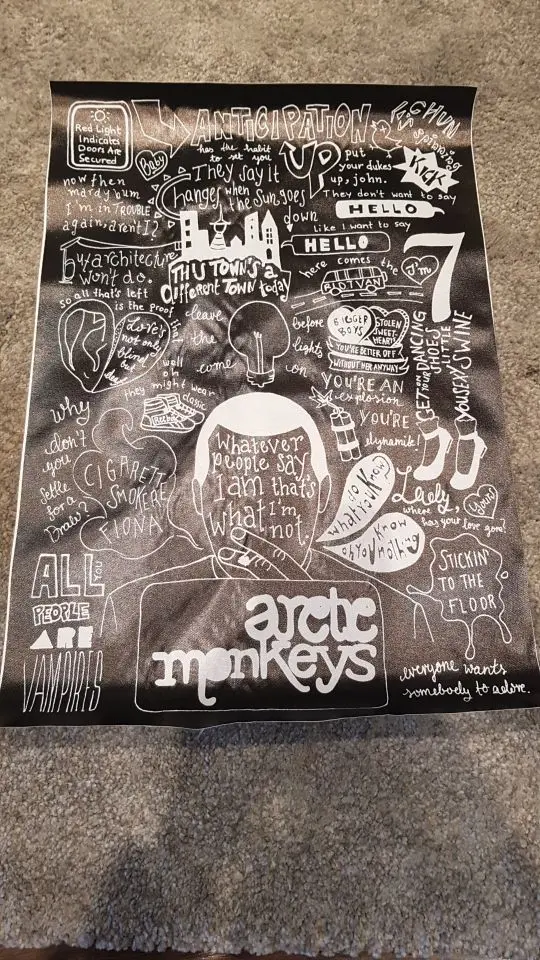 Red Light
Indicates
Doors Are
Secured
ANTICIPATION
has the habit
to set you
UP
Baby
put
your dukes
up, john.
KICK
now then
mardy bum
i'm in TROUBLE
again, aren't I?
They say it
changes when
the sun goes
down
They don't want to say
HELLO
Like I want to say
HELLO
architecture
won't do.
so all that's left
is the proof
that
Love's
not only
blind
but
THIS TOWN'S a
different TOWN today
here comes the
RIOT VAN
I'm
7
leave
before
the
lights
come
on
BIGGER
BOYS
STOLEN
SWEET-
HEARTS
YOU'RE BETTER OFF
WITHOUT HER ANYWAY
GET ON YOUR DANCING
SHOES
YOU SEXY
LITTLE
SWINE
well
oh
they might wear
classic
REEBOKS
YOU'RE AN
explosion
YOU'RE
dynamite!
why
don't
you
settle
for a
Draw?
CIGARETTE
SMOKER
FIONA
Whatever
people say
I am that's
what I'm
not.
do
what you know
Know
Lady,
where
has your love gone!
Yours
STICKIN'
TO THE
FLOOR
ALL
YOU
PEOPLE
ARE
VAMPIRES
arctic
monkeys
everyone wants
somebody to adore.